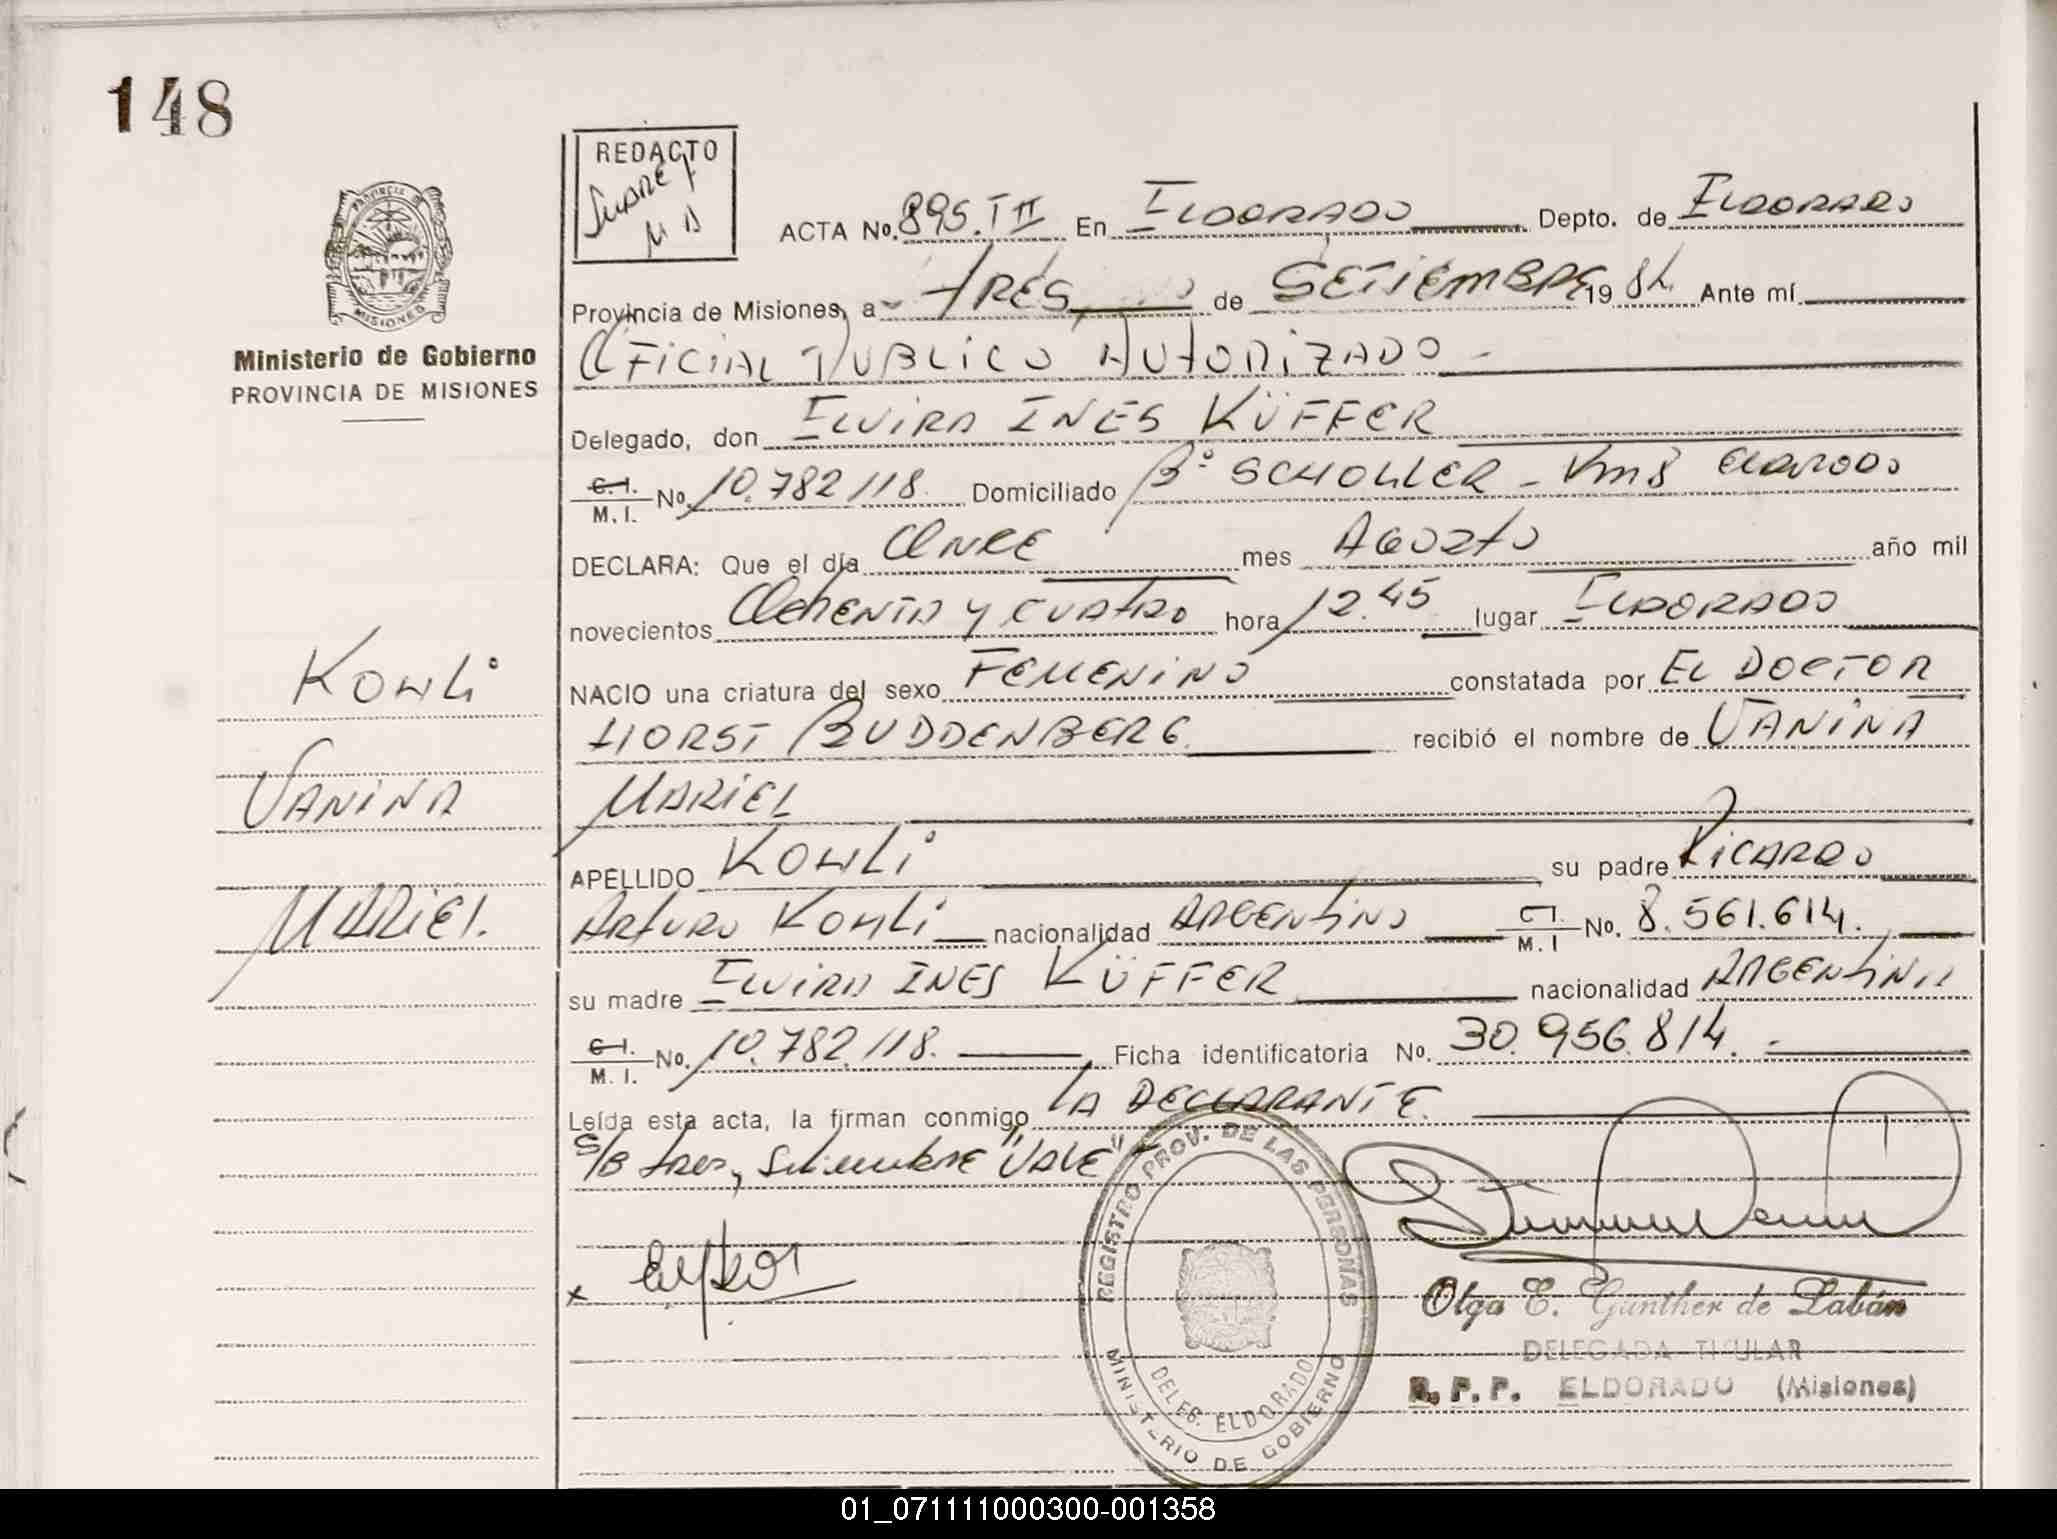 148
REDACTO
SUAREZ
M A
ACTA No. 895. TII En ELDORADO Depto. de ELDORADO
Provincia de Misiones, a TRES de SETIEMBRE 19 84 Ante mí
OFICIAL PUBLICO AUTORIZADO -
Delegado, don ELVIRA INES KÜFFER
C. I. M. I. No. 10.782.118. Domiciliado Bº SCHOLLER - Km 8 ELDORADO
DECLARA: Que el día ONCE mes AGOSTO año mil
novecientos OCHENTA Y CUATRO hora 12.45 lugar ELDORADO
NACIO una criatura del sexo FEMENINO constatada por EL DOCTOR
HORST BUDDENBERG recibió el nombre de VANINA
MARIEL
APELLIDO KOHLI su padre RICARDO
ARTURO KOHLI nacionalidad ARGENTINO C.I. M. I No. 8.561.614.
su madre ELVIRA INES KÜFFER nacionalidad ARGENTINA
C. I. M. I. No. 10.782.118. Ficha identificatoria No. 30.956.814. -
Leída esta acta, la firman conmigo LA DECLARANTE.
S/B tres, Setiembre "VALE"
x
PROVINCIA DE MISIONES
Ministerio de Gobierno
PROVINCIA DE MISIONES
KOHLI
VANINA
MARIEL.
REGISTRO PROV. DE LAS PERSONAS
DELEG. ELDORADO
MINISTERIO DE GOBIERNO
Olga E. Gunther de Labán
DELEGADA TITULAR
R. P. P. ELDORADO (Misiones)
01_071111000300-001358